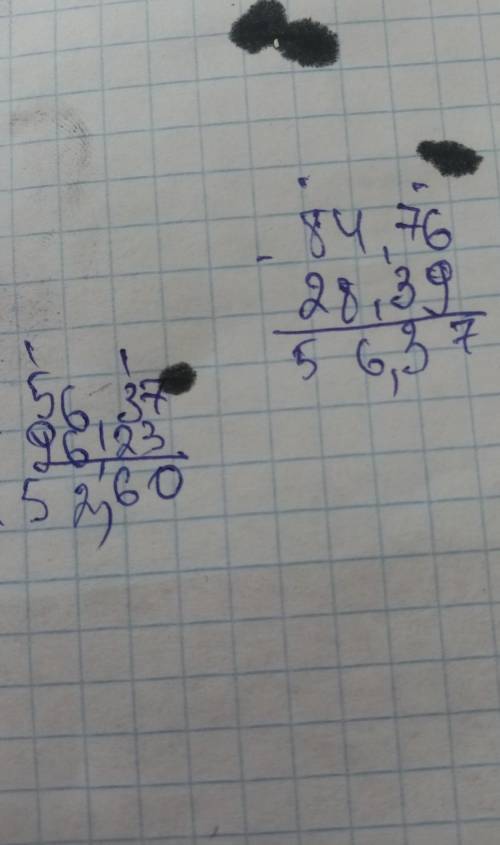 84,76
- 28,39
56,37
56,37
96,23
52,60